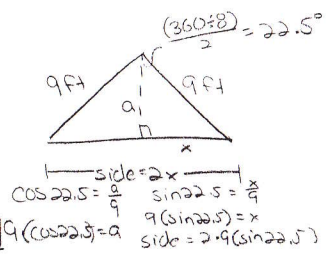 (360÷8)/2 = 22.5°
9ft
9ft
a
x
side=2x
cos22.5 = a/9
sin22.5 = x/9
9(cos22.5)=a
9(sin22.5)=x
side=2·9(sin22.5)